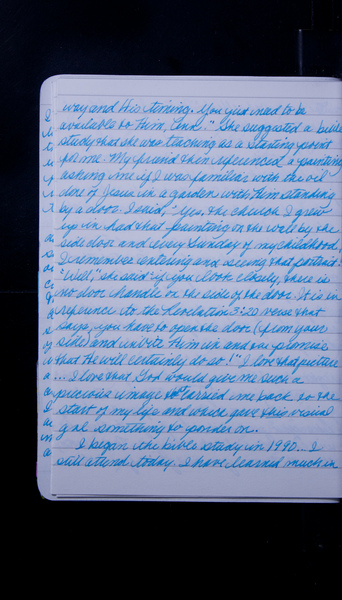 way and His timing. You just need to be
available to Him, Ann." She suggested a bible
study that she was teaching as a starting point
for me. My friend then referenced a painting
asking me if I was familiar with the oil
one of Jesus in a garden with Him standing
by a door. I said, "Yes, the church I grew
up in had that painting on the wall by the
side door and every Sunday of my childhood,
I remember entering and seeing that portrait."
"Well," she said if you look closely, there is
no door handle on the side of the door. It is in
reference to the Revelation 3:20 verse that
says, you have to open the door (from your
side) and invite Him in and He promises
that He will certainly do so!" I love that picture
... I love that God would give me such a
precious image that carried me back to the
start of my life and whose gave this visual
gal something to ponder on.
I began the bible study in 1990... I
still attend today. I have learned much in